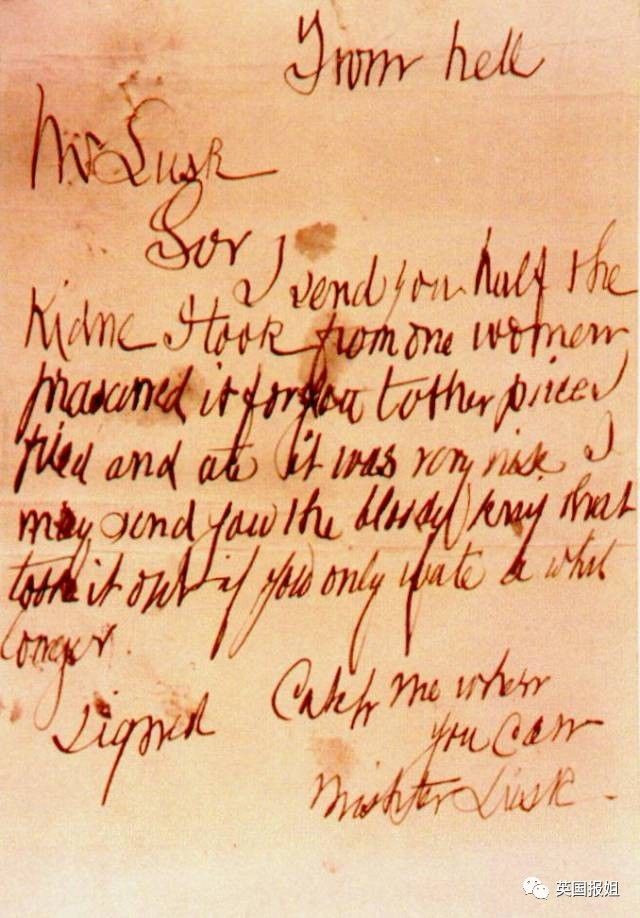 From hell
Mr Lusk
Sor
I send you half the
Kidne I took from one women
prasarved it for you tother piece I
fried and ate it was very nise I
may send you the bloody knif that
took it out if you only wate a whil
longer.
signed
Catch me when
you Can
Mishter Lusk.
英国报姐